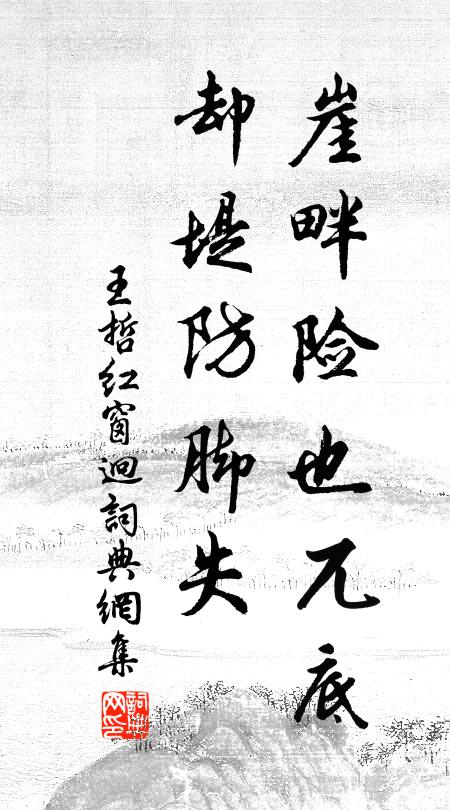 崖畔险也兀底
却堤防脚失
王哲红窗迥詞典網集
詞典网印